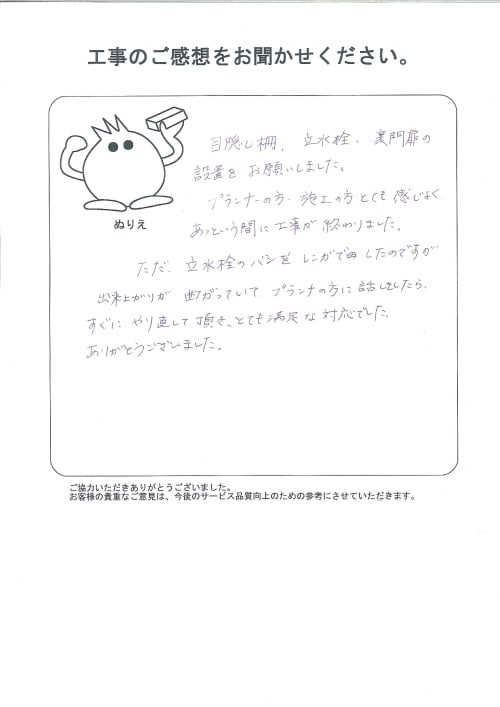 工事のご感想をお聞かせください。
目隠し柵、立水栓、裏門扉の
設置をお願いしました。
プランナーの方・施工の方とても感じよく
あっという間に工事が終わりました。
ぬりえ
ただ、立水栓のパンをレンガで
したのですが
出来上がりが曲がっていて、プランナの方に話しをしたら、
すぐにやり直して頂き、とても満足な対応でした。
ありがとうございました。
ご協力いただきありがとうございました。
お客様の貴重なご意見は、今後のサービス品質向上のための参考にさせていただきます。